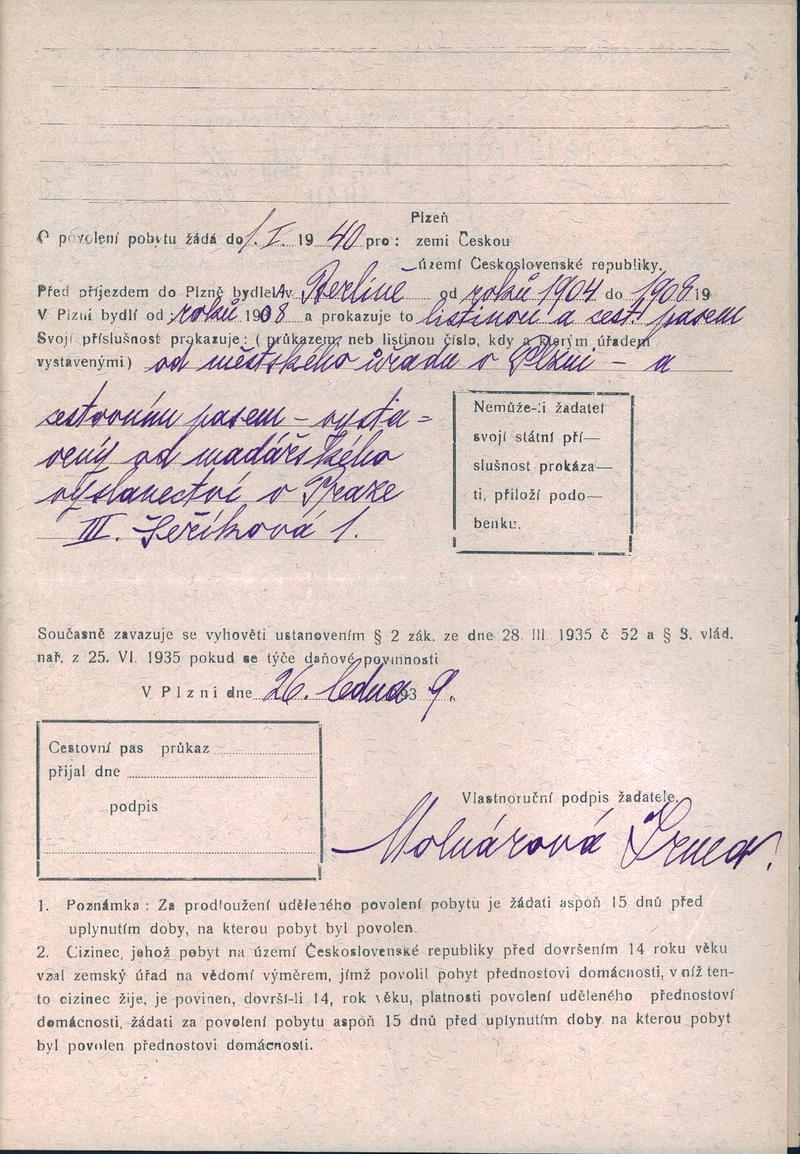 Plzeň
O povolení pobytu žádá do 1. I. 1940 pro: zemi Českou
území Československé republiky.
Před příjezdem do Plzně bydlela v Berlíně od roků 1904 do 1908 19
V Plzni bydlí od roků 1908 a prokazuje to listinou a cest. pasem
Svojí příslušnost prokazuje: ( průkazem, neb listinou číslo, kdy a kterým úřadem
vystavenými) od městského úřadu v Plzni – a
cestovním pasem – vysta=
vený od madářského
vyslanectví v Praze
III. Šeříková 1.
Nemůže-li žadatel
svojí státní pří—
slušnost prokáza—
ti, přiloží podo—
benku.
Současně zavazuje se vyhověti ustanovením § 2 zák. ze dne 28. III. 1935 č 52 a § 3. vlád.
nař. z 25. VI. 1935 pokud se týče daňové povinnosti
V Plzni dne 26. ledna 1939.
Cestovní pas průkaz
přijal dne
podpis
Vlastnoruční podpis žadatele.
Molnárová Irma.
1. Poznámka : Za prodloužení uděleného povolení pobytu je žádati aspoň 15 dnů před
uplynutím doby, na kterou pobyt byl povolen.
2. Cizinec, jehož pobyt na území Československé republiky před dovršením 14 roku věku
vzal zemský úřad na vědomí výměrem, jímž povolil pobyt přednostovi domácnosti, v níž ten-
to cizinec žije, je povinen, dovrší-li 14, rok věku, platnosti povolení uděleného přednostoví
domácnosti, žádati za povolení pobytu aspoň 15 dnů před uplynutím doby na kterou pobyt
byl povolen přednostovi domácnosti.